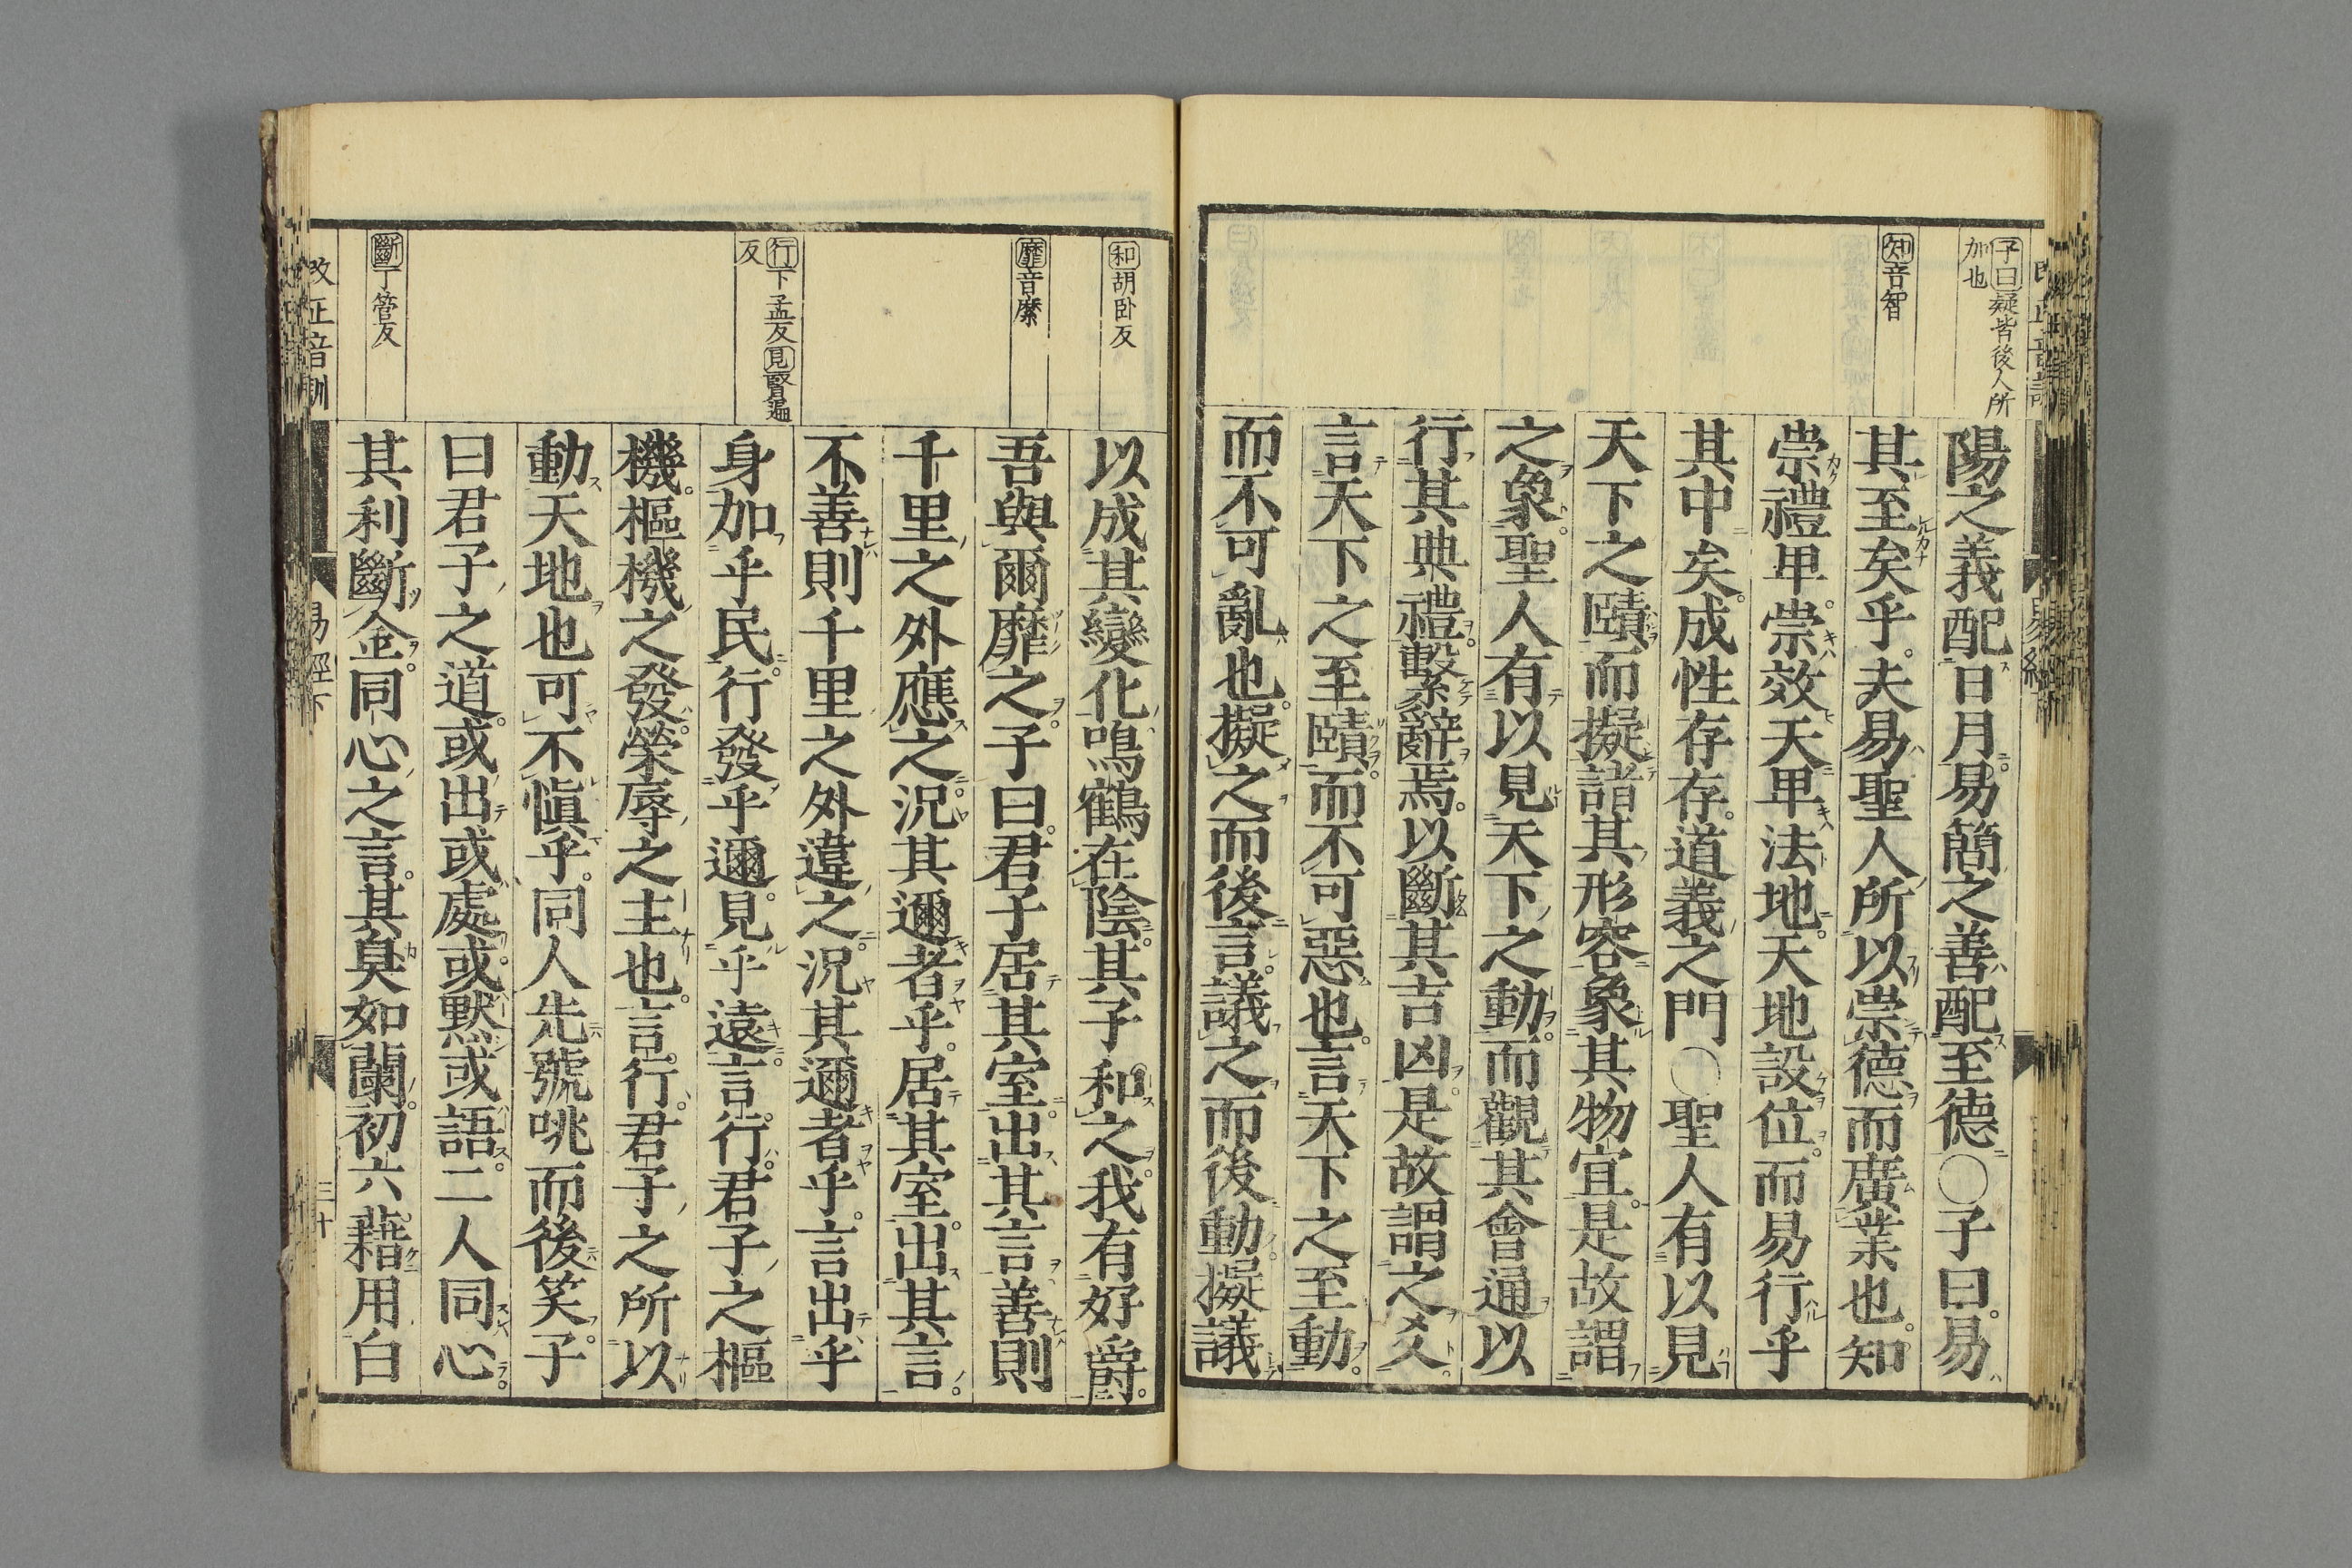 子曰疑皆後人所
加也
知音智
陽之義配日月易簡之善配至德〇子曰易
其至矣乎夫易聖人所以崇德而廣業也知
崇禮卑崇效天卑法地天地設位而易行乎
其中矣成性存存道義之門〇聖人有以見
天下之賾而擬諸其形容象其物宜是故謂
之象聖人有以見天下之動而觀其會通以
行其典禮繫辭焉以斷其吉凶是故謂之爻
言天下之至賾而不可惡也言天下之至動
而不可亂也擬之而後言議之而後動擬議
和胡卧反
靡音縻
行下孟反見賢遍
反
斷丁管反
以成其變化鳴鶴在陰其子和之我有好爵
吾與爾靡之子曰君子居其室出其言善則
千里之外應之況其邇者乎居其室出其言
不善則千里之外違之況其邇者乎言出乎
身加乎民行發乎邇見乎遠言行君子之樞
機樞機之發榮辱之主也言行君子之所以
動天地也可不愼乎同人先號咷而後笑子
曰君子之道或出或處或默或語二人同心
其利斷金同心之言其臭如蘭初六藉用白
改正音訓
易經下
三十